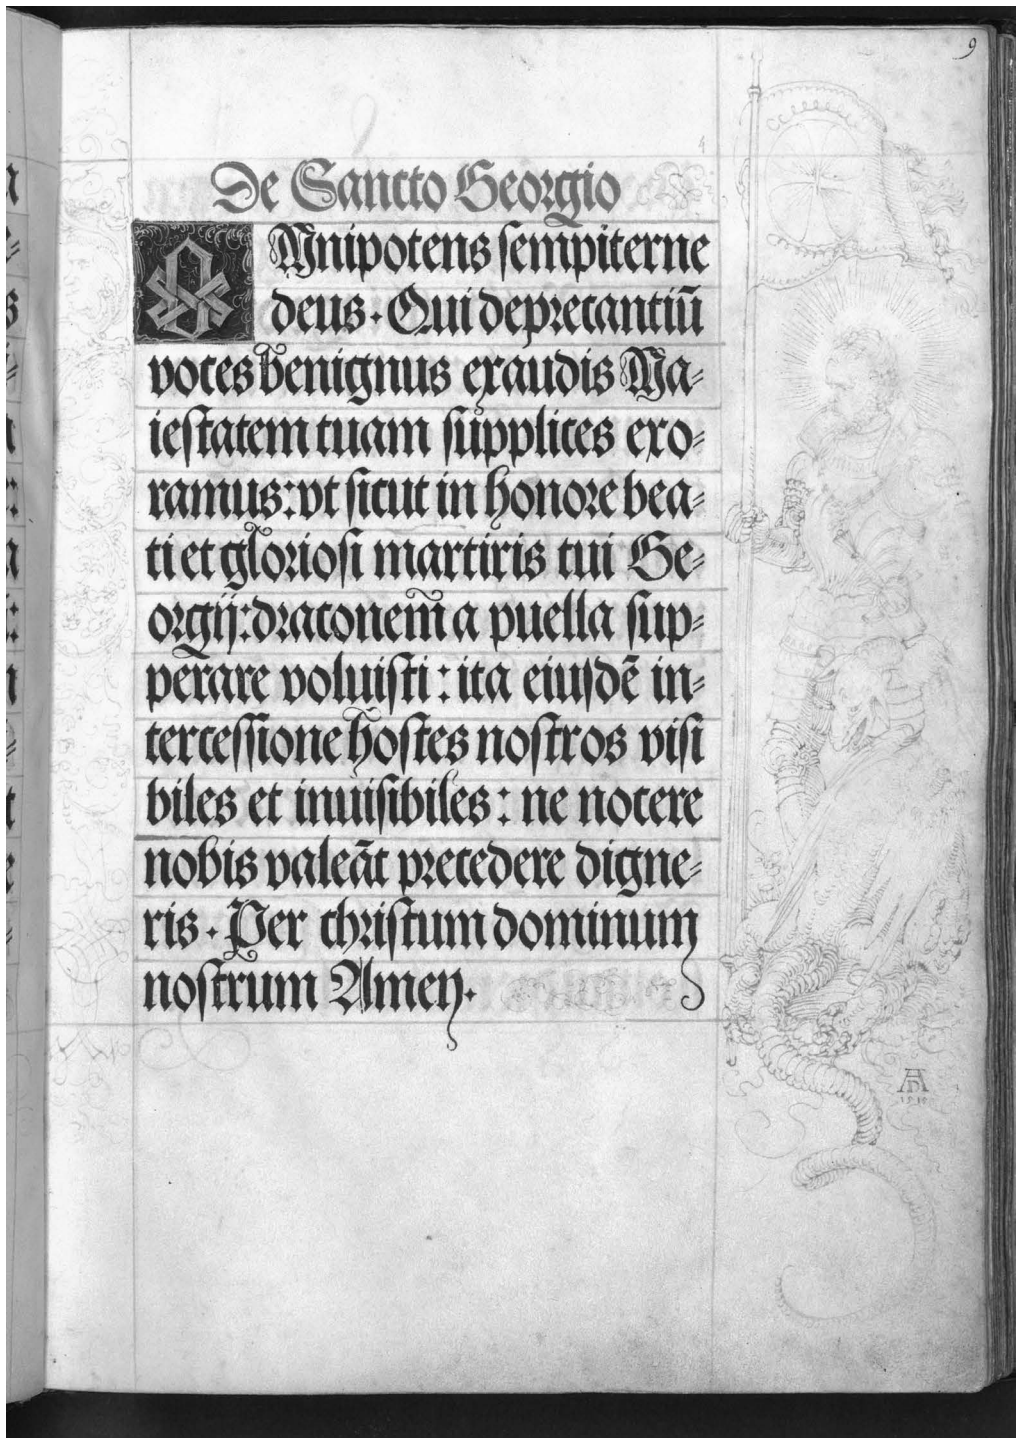 9
De Sancto Georgio
OMnipotens sempiterne
deus. Qui deprecantiū
voces benignus exaudis Ma-
iestatem tuam supplices exo-
ramus: vt sicut in honore bea-
ti et gloriosi martiris tui Ge-
orgij: draconem̄ a puella sup-
perare voluisti: ita eiusdē in-
tercessione hostes nostros visi
biles et inuisibiles: ne nocere
nobis valeāt precedere digne-
ris. Per christum dominum
nostrum Amen.
AD